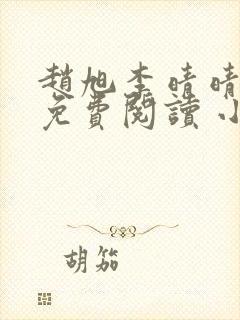 趙旭李晴晴
免費閱讀小
胡笳